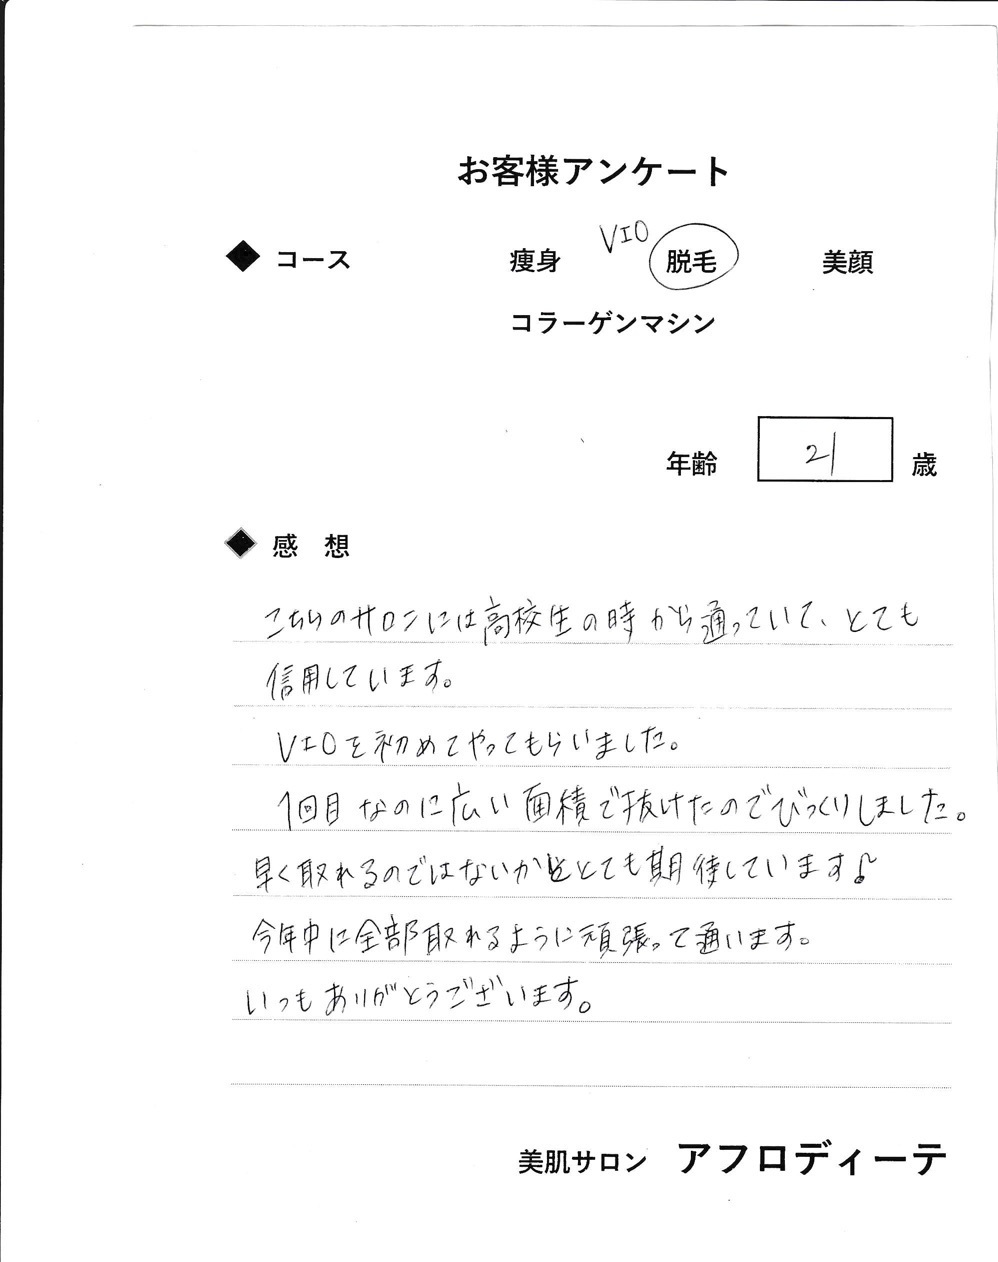 お客様アンケート
VIO
◆ コース 痩身 脱毛 美顔
コラーゲンマシン
年齢 21 歳
◆ 感 想
こちらのサロンには高校生の時から通っていて、とても
信用しています。
VIOを初めてやってもらいました。
1回目なのに広い面積で抜けたのでびっくりしました。
早く取れるのではないかととても期待しています♪
今年中に全部取れるように頑張って通います。
いつもありがとうございます。
美肌サロン アフロディーテ